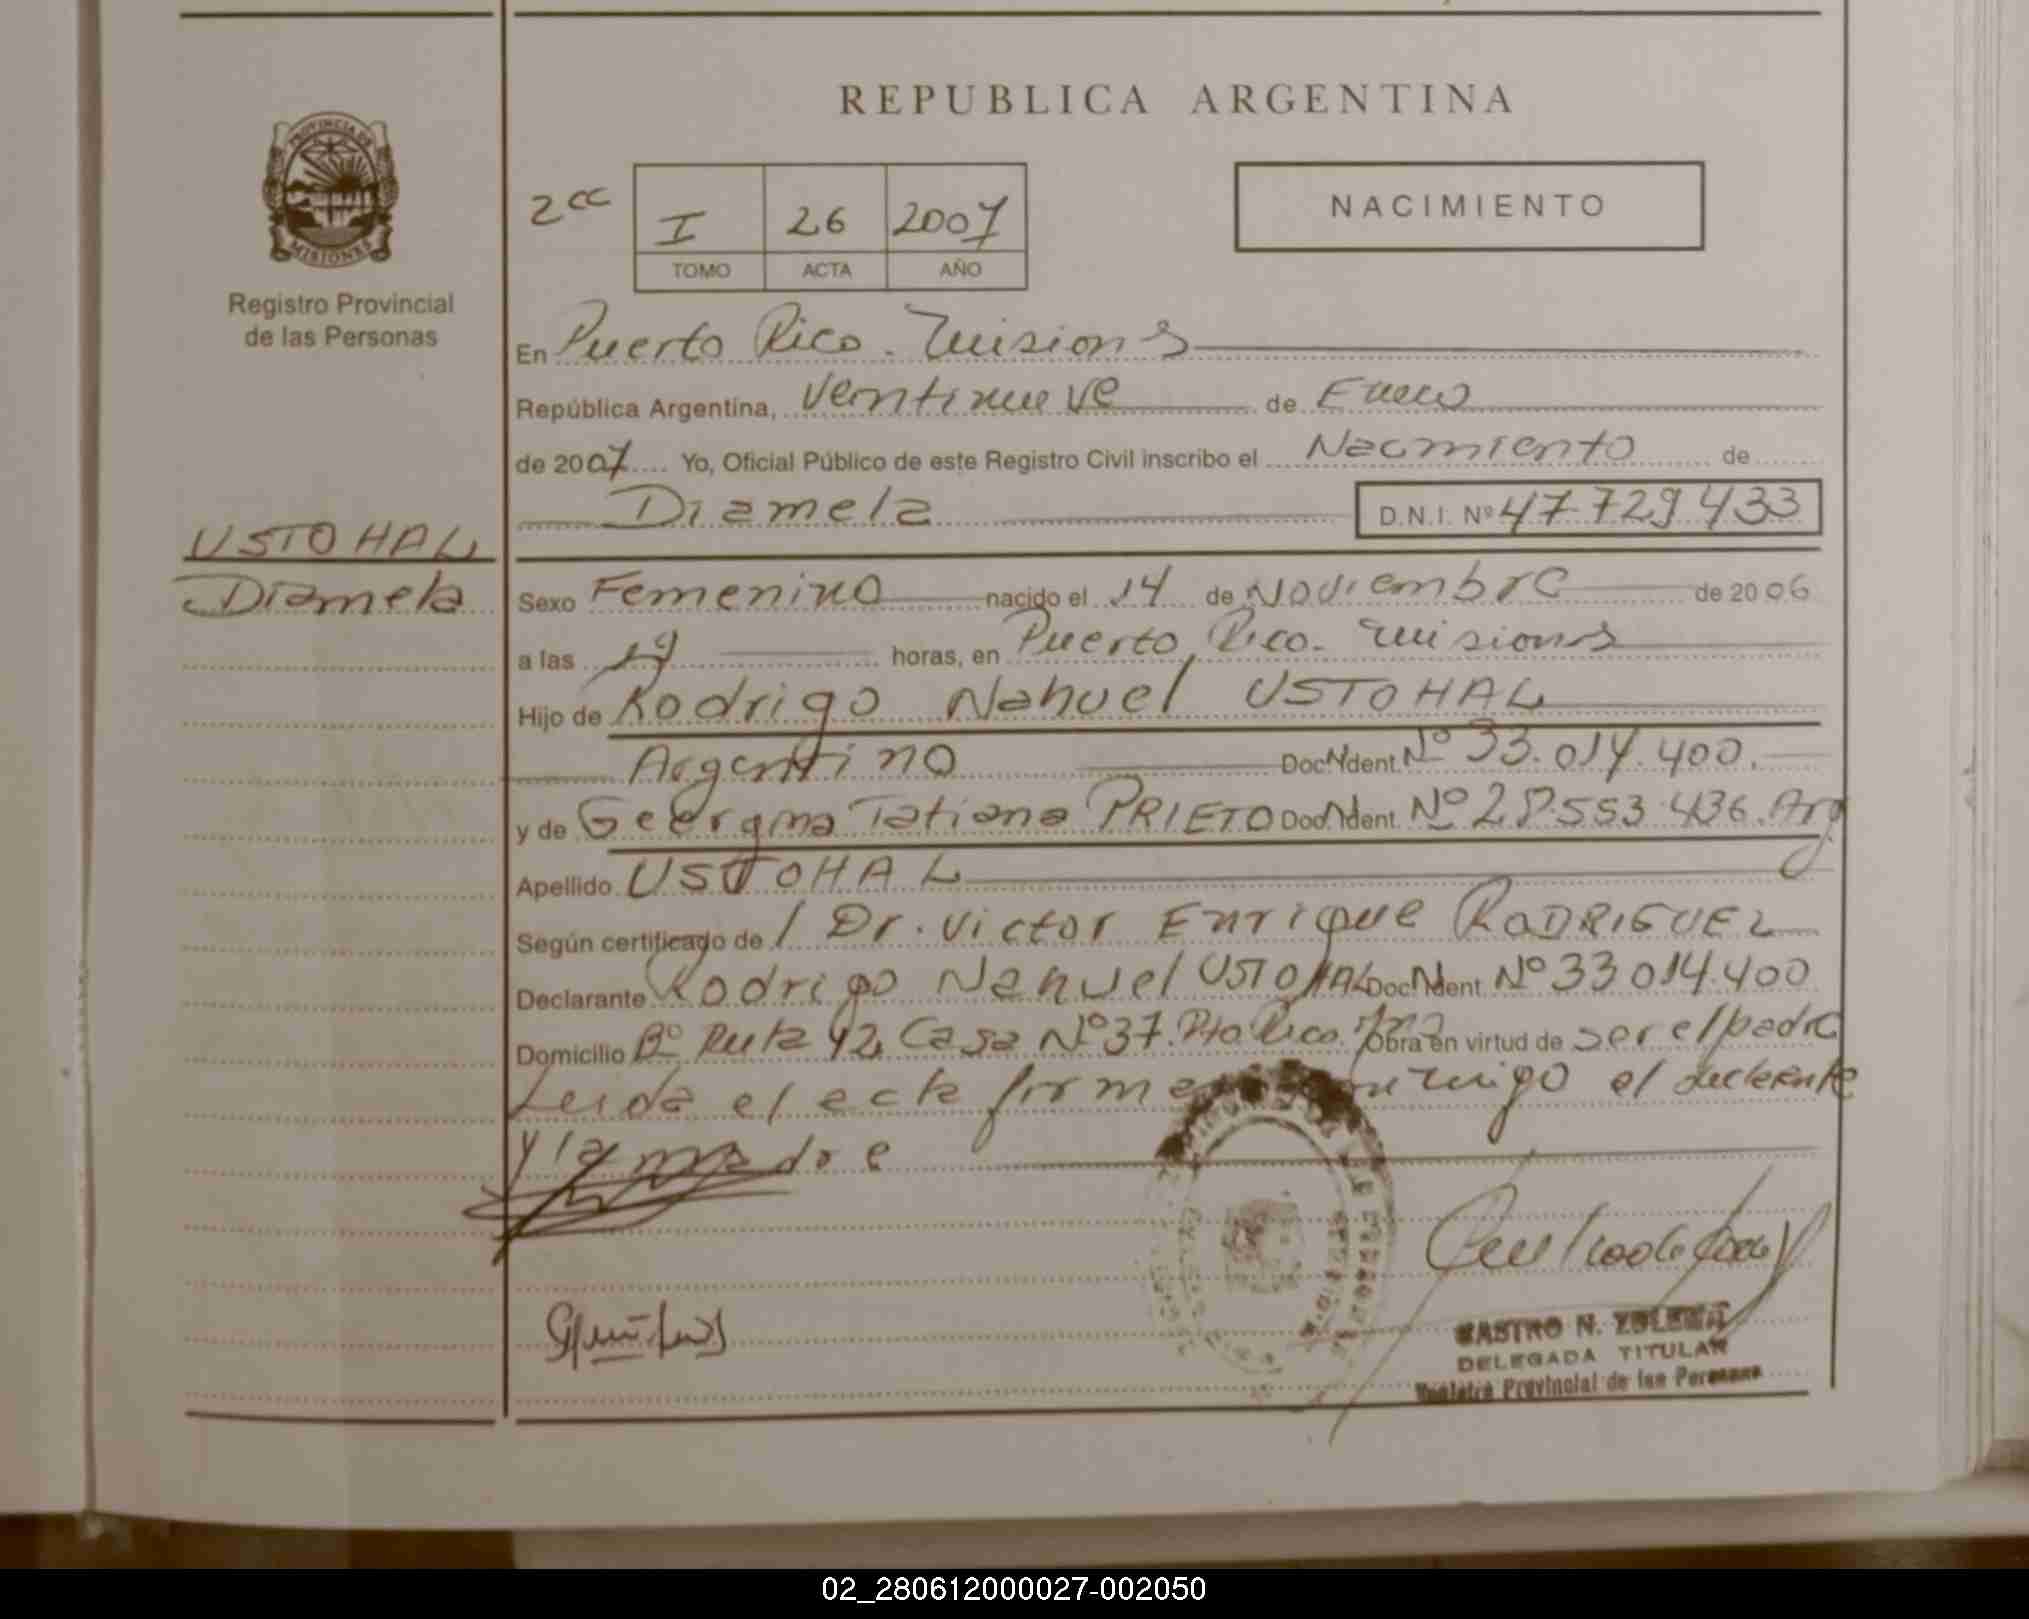 REPUBLICA ARGENTINA
PROVINCIA DE
MISIONES
Registro Provincial
de las Personas
2cc
I 26 2007
TOMO ACTA AÑO
NACIMIENTO
En Puerto Rico. Misiones
República Argentina, Veintinueve de Enero
de 2007 Yo, Oficial Público de este Registro Civil inscribo el Nacimiento de
Diamela D.N.I. Nº 47.729.433
USTOHAL
Diamela
Sexo Femenino nacido el 14 de Noviembre de 2006
a las 19 horas, en Puerto Rico. Misiones
Hijo de Rodrigo Nahuel USTOHAL
Argentino Doc. Ident. Nº 33.014.400.
y de Tatiana PRIETO Doc. Ident. Nº 28.553.436. Arg
Apellido USTOHAL
Según certificado de / Dr. Victor Enrique RODRIGUEZ
Declarante Rodrigo Nahuel USTOHAL Doc. Ident. Nº 33.014.400
Domicilio Bº Ruta 12 Casa Nº 37. Pto Rico. Obra en virtud de ser el padre
Leida el acta firma conmigo el declarante
y la madre
CASTRO N. ZULEMA
DELEGADA TITULAR
Registro Provincial de las Personas
02_280612000027-002050